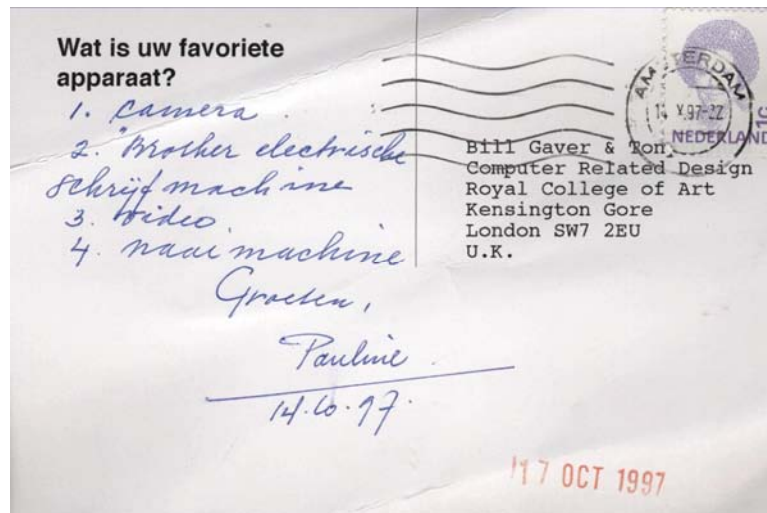 Wat is uw favoriete
apparaat?
1. Camera
2. "Brother electrische
schrijfmachine
3. video
4. naaimachine
Groeten,
Pauline
14.10.97.
AMSTERDAM
14 X.97-22
NEDERLAND
Bill Gaver & Ton
Computer Related Design
Royal College of Art
Kensington Gore
London SW7 2EU
U.K.
17 OCT 1997